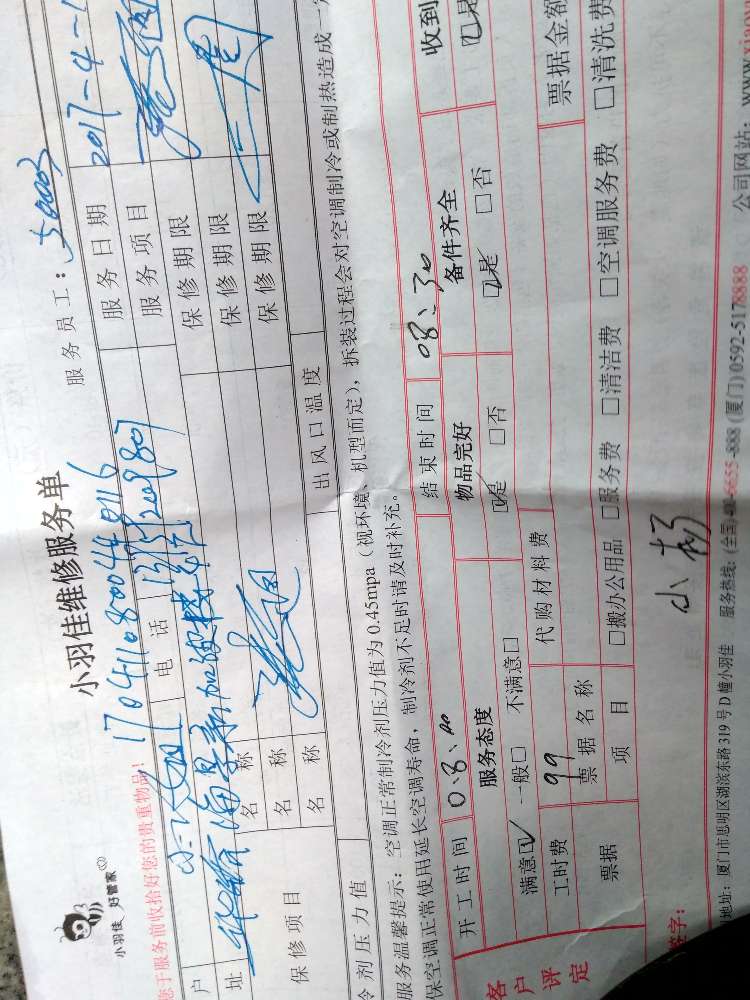 小羽佳 好管家
小羽佳维修服务单
您于服务前收拾好您的贵重物品!
17041108004016
服务员工:
户
电话
服务日期 2017-4-1
址
服务项目
保修项目
名称
保修期限
名称
保修期限
名称
保修期限
冷剂压力值
出风口温度
服务温馨提示:空调正常制冷剂压力值为0.45mpa(视环境、机型而定),拆装过程会对空调制冷或制热造成一定
保空调正常使用延长空调寿命,制冷剂不足时请及时补充。
客户评定
开工时间 08:00
结束时间 08:30
收到
服务态度
物品完好
备件齐全
满意☑ 一般□ 不满意□
☑是 □否
☑是 □否
☑是
工时费 99
代购材料费
票据
票据名称
票据金额
项目
□搬办公用品 □服务费 □清洁费 □空调服务费 □清洗费
签字:
小杨
地址:厦门市思明区湖滨东路319号D幢小羽佳 服务热线:(全国)400-6655-888 (厦门)0592-5178888 公司网站:www.xiao